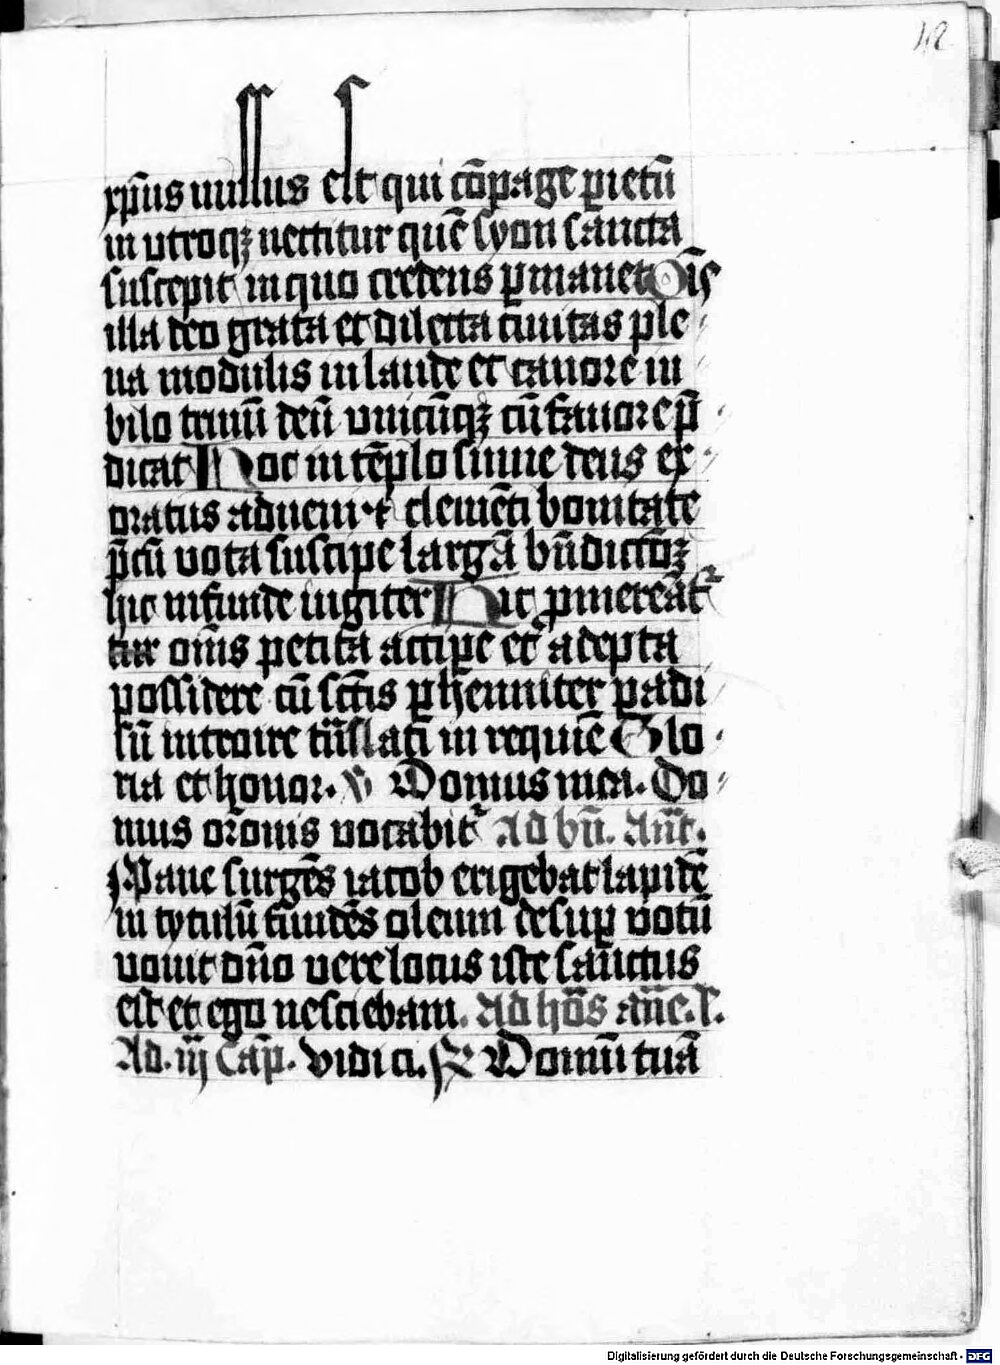 42
xp̄us missus est qui cōpage pietū
in utroqꝫ nectitur quē syon sancta
suscepit in quo credens ꝑmanet Oīs
illa deo grata et dilecta ciuitas ple
na modulis in laude et canore iu
bilo trinū deū unicūqꝫ cū fauore p̄
dicat Hoc in tēplo sūme deus ex
oratus adueni et clemēti bonitate
p̄cū uota suscipe largā bn̄dictōꝫ
hic infunde iugiter Hic ꝓmereāt᷑
tur om̄s petita accipe et adepta
possidere cū sct̄is ꝑhenniter padi
sū introire trāslati in requiē Glo
ria et honor. V Domus mea. Do
mus or̄onis uocabit᷑ Ad bn̄. Ant̄.
Mane surgēs iacob erigebat lapidē
in tytulū fundēs oleum desuꝑ uotū
uouit dn̄o uere locus iste sanctus
est et ego nesciebam. Ad hōs an̄e. l.
Ad. iij Cap̄. Vidi ci. R Domū tuā
Digitalisierung gefördert durch die Deutsche Forschungsgemeinschaft - DFG